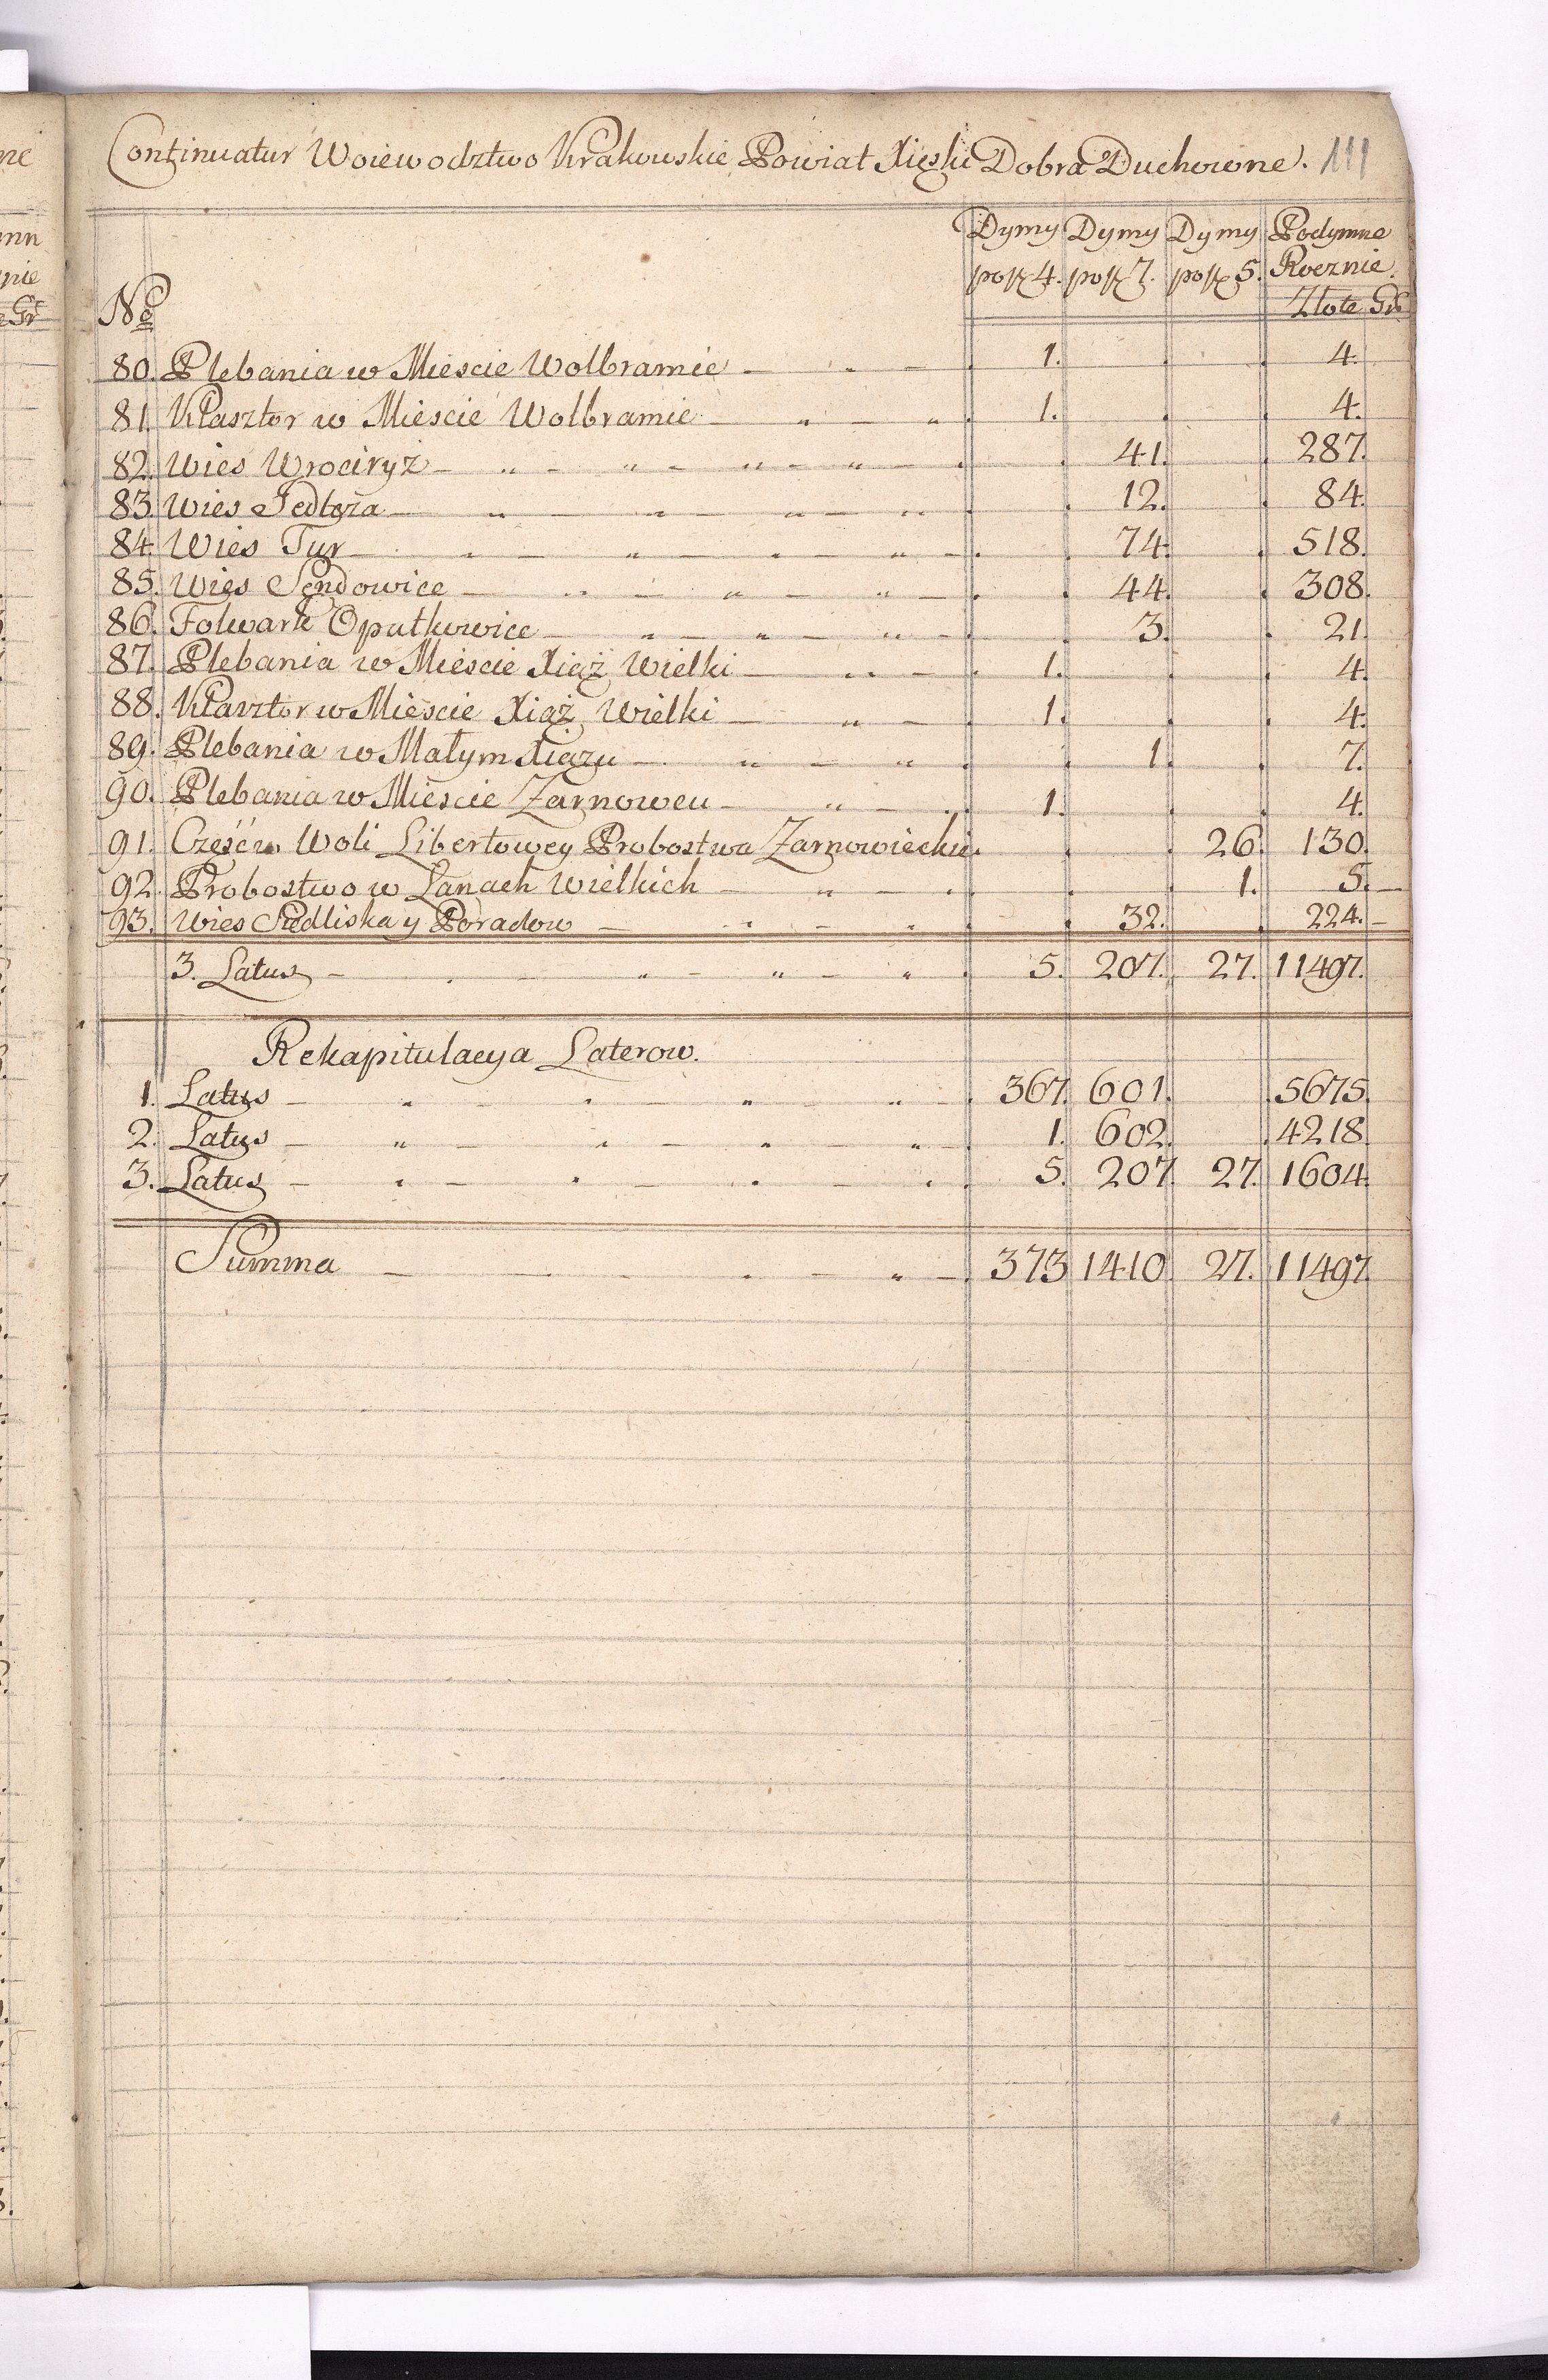 Continuatur Woiewodztwo Krakowskie Powiat Xięski Dobra Duchowne. 111
Dymy Dymy Dymy Podymne
po fl 4. po fl 7. po fl 5. Rocznie.
No Złote Gr
80. Plebania w Miescie Wolbramie 1. 4.
81. Klasztor w Miescie Wolbramie 1. 4.
82. Wies Wrociryż 41. 287.
83. Wies Jedłcza 12. 84.
84. Wies Tur 74. 518.
85. Wies Sędowice 44. 308.
86. Folwark Opatkowice 3. 21.
87. Plebania w Miescie Xiąż Wielki 1. 4.
88. Klasztor w Miescie Xiąż Wielki 1. 4.
89. Plebania w Małym Xiązu 1. 7.
90. Plebania w Miescie Zarnowcu 1. 4.
91. Częśćw Woli Libertowey Probostwa Zarnowieckie. 26. 130.
92. Probostwo w Łanach Wielkich 1. 5.
93. Wies Siedliska y Poradow 32. 224.
3. Latus 5. 207. 27. 11497.
Rekapitulacya Laterow.
1. Latus 367. 601. 5675.
2. Latus 1. 602. 4218.
3. Latus 5. 207. 27. 1604.
Summa 373 1410. 27. 11497.